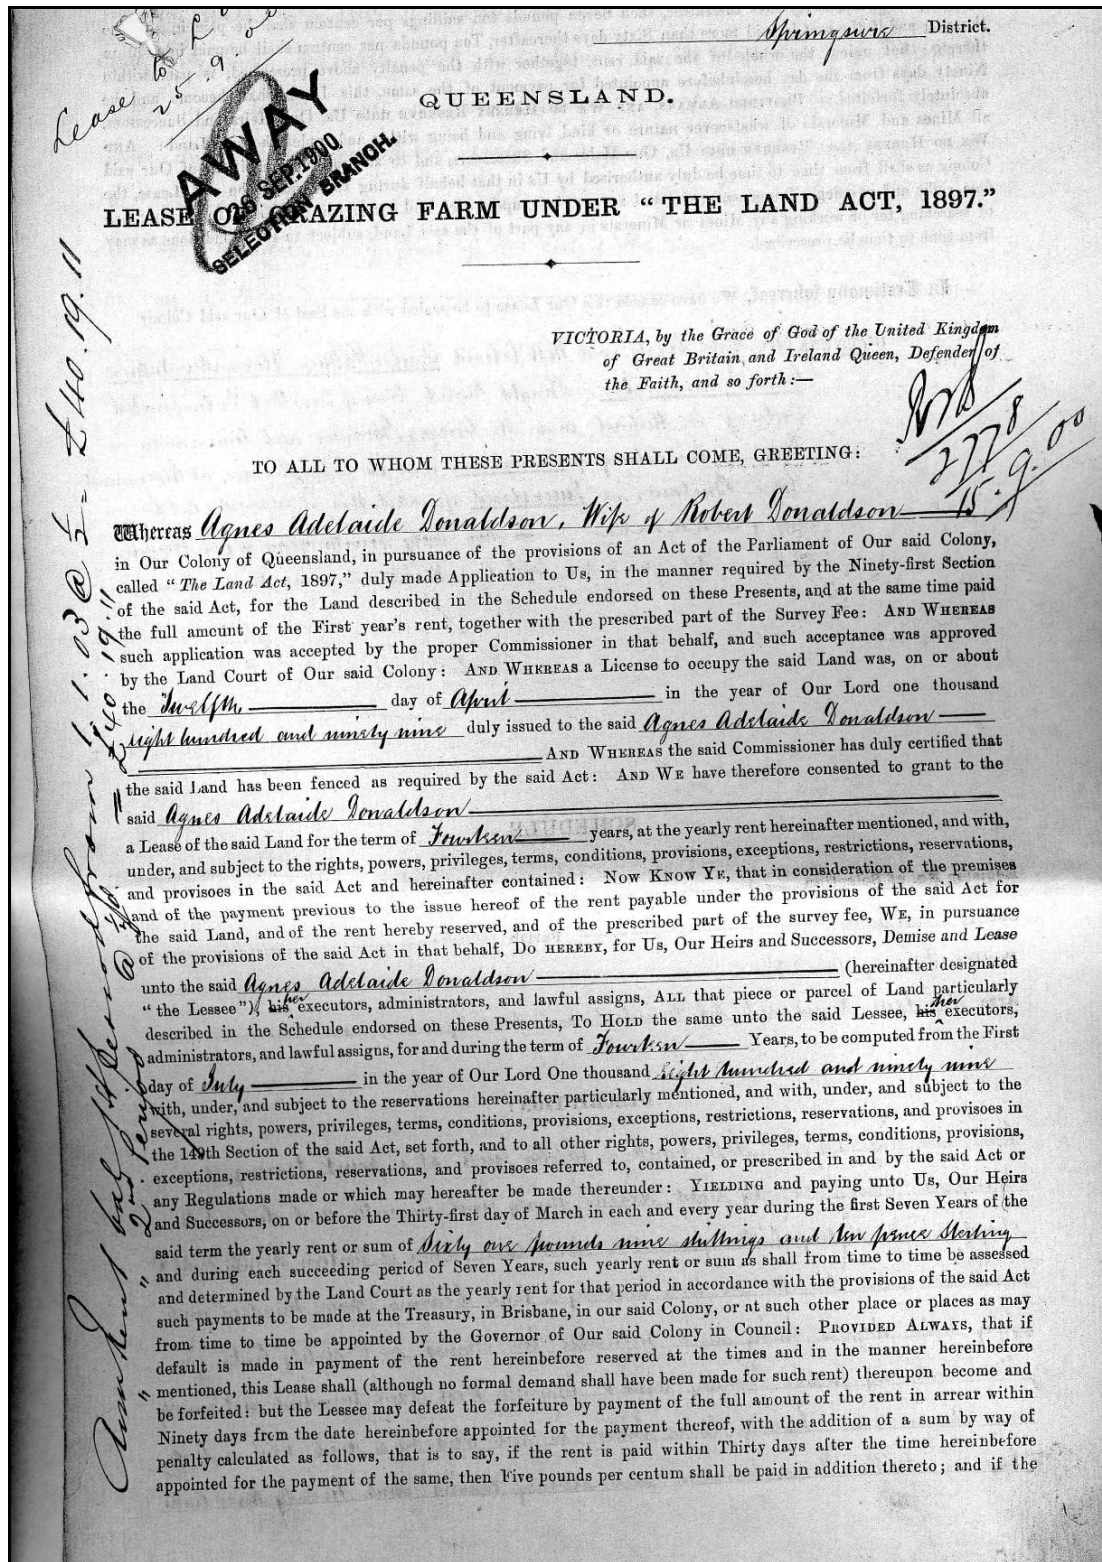 Springsure District.
Lease to
25 9 00
AWAY
28 SEP. 1900
SELECTION BRANCH.
QUEENSLAND.
LEASE OF GRAZING FARM UNDER “THE LAND ACT, 1897.”
VICTORIA, by the Grace of God of the United Kingdom
of Great Britain and Ireland Queen, Defender of
the Faith, and so forth:—
2778
15.9.00
TO ALL TO WHOM THESE PRESENTS SHALL COME, GREETING:
Whereas Agnes Adelaide Donaldson, Wife of Robert Donaldson
in Our Colony of Queensland, in pursuance of the provisions of an Act of the Parliament of Our said Colony,
called “The Land Act, 1897,” duly made Application to Us, in the manner required by the Ninety-first Section
of the said Act, for the Land described in the Schedule endorsed on these Presents, and at the same time paid
the full amount of the First year's rent, together with the prescribed part of the Survey Fee: AND WHEREAS
such application was accepted by the proper Commissioner in that behalf, and such acceptance was approved
by the Land Court of Our said Colony: AND WHEREAS a License to occupy the said Land was, on or about
the Twelfth day of April in the year of Our Lord one thousand
eight hundred and ninety nine duly issued to the said Agnes Adelaide Donaldson
AND WHEREAS the said Commissioner has duly certified that
the said Land has been fenced as required by the said Act: AND WE have therefore consented to grant to the
said Agnes Adelaide Donaldson
a Lease of the said Land for the term of Fourteen years, at the yearly rent hereinafter mentioned, and with,
under, and subject to the rights, powers, privileges, terms, conditions, provisions, exceptions, restrictions, reservations,
and provisoes in the said Act and hereinafter contained: NOW KNOW YE, that in consideration of the premises
and of the payment previous to the issue hereof of the rent payable under the provisions of the said Act for
the said Land, and of the rent hereby reserved, and of the prescribed part of the survey fee, WE, in pursuance
of the provisions of the said Act in that behalf, DO HEREBY, for Us, Our Heirs and Successors, Demise and Lease
unto the said Agnes Adelaide Donaldson (hereinafter designated
“the Lessee”), his her executors, administrators, and lawful assigns, ALL that piece or parcel of Land particularly
described in the Schedule endorsed on these Presents, TO HOLD the same unto the said Lessee, his her executors,
administrators, and lawful assigns, for and during the term of Fourteen Years, to be computed from the First
day of July in the year of Our Lord One thousand eight hundred and ninety nine
with, under, and subject to the reservations hereinafter particularly mentioned, and with, under, and subject to the
several rights, powers, privileges, terms, conditions, provisions, exceptions, restrictions, reservations, and provisoes in
the 149th Section of the said Act, set forth, and to all other rights, powers, privileges, terms, conditions, provisions,
exceptions, restrictions, reservations, and provisoes referred to, contained, or prescribed in and by the said Act or
any Regulations made or which may hereafter be made thereunder: YIELDING and paying unto Us, Our Heirs
and Successors, on or before the Thirty-first day of March in each and every year during the first Seven Years of the
said term the yearly rent or sum of Sixty one pounds nine shillings and ten pence Sterling
and during each succeeding period of Seven Years, such yearly rent or sum as shall from time to time be assessed
and determined by the Land Court as the yearly rent for that period in accordance with the provisions of the said Act
such payments to be made at the Treasury, in Brisbane, in our said Colony, or at such other place or places as may
from time to time be appointed by the Governor of Our said Colony in Council: PROVIDED ALWAYS, that if
default is made in payment of the rent hereinbefore reserved at the times and in the manner hereinbefore
mentioned, this Lease shall (although no formal demand shall have been made for such rent) thereupon become and
be forfeited: but the Lessee may defeat the forfeiture by payment of the full amount of the rent in arrear within
Ninety days from the date hereinbefore appointed for the payment thereof, with the addition of a sum by way of
penalty calculated as follows, that is to say, if the rent is paid within Thirty days after the time hereinbefore
appointed for the payment of the same, then Five pounds per centum shall be paid in addition thereto; and if the
from 1.1.03 @ = £40.19.11
" " " 2nd period @ £40.19.11